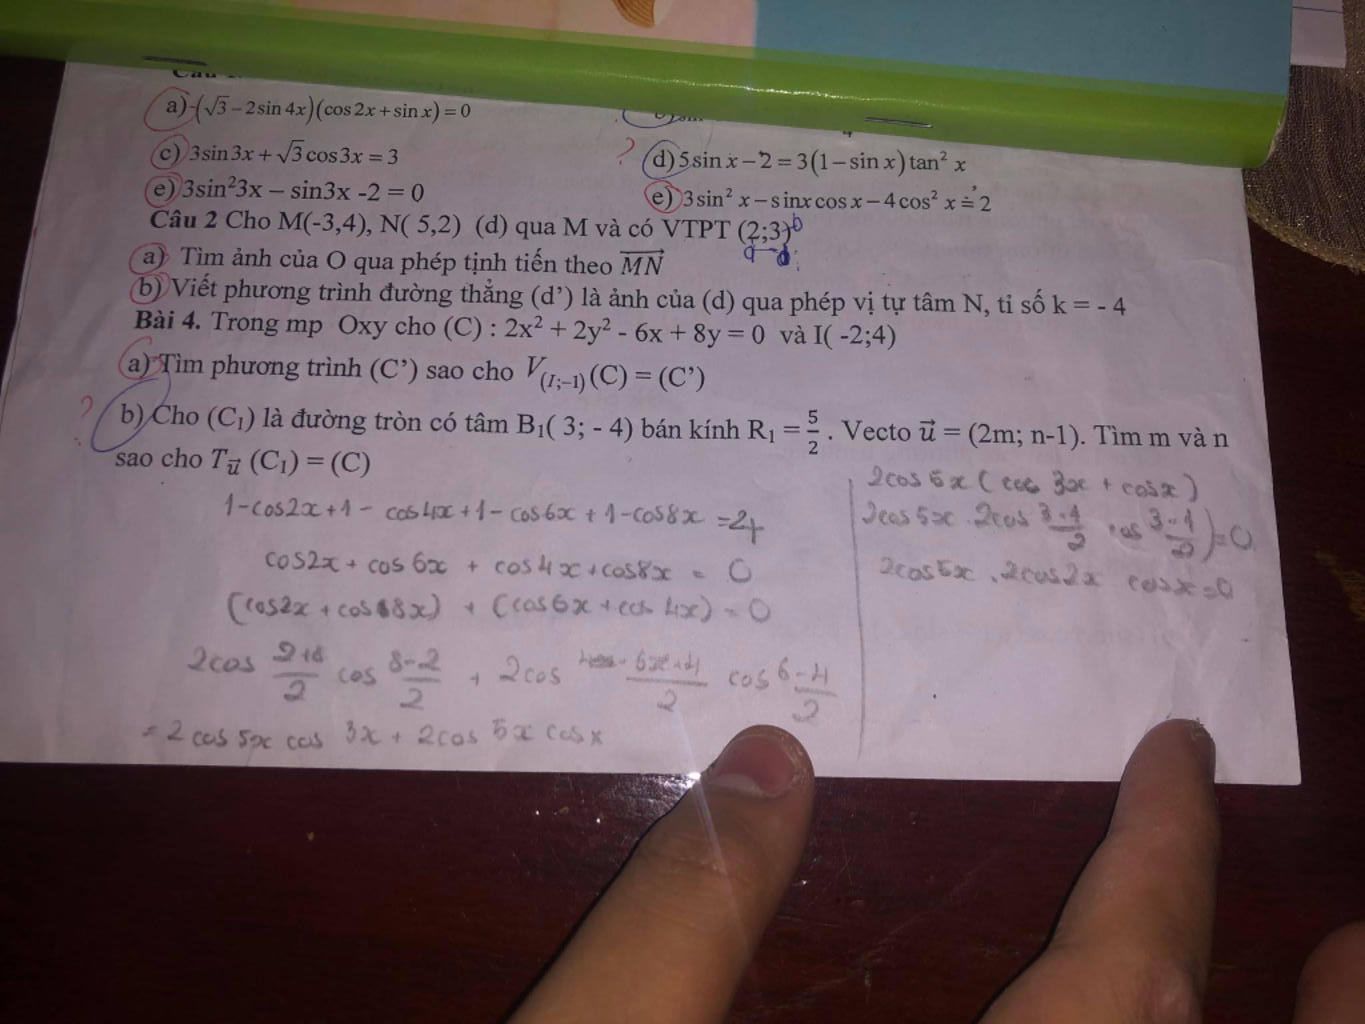 a) (√3 – 2sin 4x)(cos 2x + sin x) = 0
c) 3sin3x + √3 cos3x = 3
? d) 5sin x – 2 = 3(1 – sin x) tan² x
e) 3sin²3x – sin3x -2 = 0
e) 3sin² x – sin x cos x – 4cos² x = 2
Câu 2 Cho M(-3,4), N( 5,2) (d) qua M và có VTPT (2;3)
a) Tìm ảnh của O qua phép tịnh tiến theo MN
b) Viết phương trình đường thẳng (d’) là ảnh của (d) qua phép vị tự tâm N, tỉ số k = - 4
Bài 4. Trong mp Oxy cho (C) : 2x² + 2y² - 6x + 8y = 0 và I( -2;4)
a) Tìm phương trình (C’) sao cho V(I;–1)(C) = (C’)
? b) Cho (C₁) là đường tròn có tâm B₁( 3; - 4) bán kính R₁ = 5/2 . Vecto u⃗ = (2m; n-1). Tìm m và n
sao cho Tu⃗ (C₁) = (C)
1-cos2x+1- cos4x+1-cos6x+1-cos8x =4
cos2x+cos6x + cos4x+cos8x = 0
(cos2x+cos8x) + (cos6x+cos 4x) = 0
2cos cos 8-2/2 + 2cos cos 6-4/2
= 2 cos 5x cos 3x + 2cos 5x cos x
2cos 5x (cos 3x + cosx)
2cos 5x . 2cos cos ) = 0
2cos5x . 2cos2x cosx=0